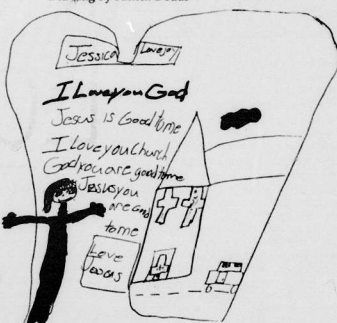 Jessica Lovejoy
I Love you God
Jesus is Good to me
I love you Church
God you are good to me
Jesus you
are good
to me
Love